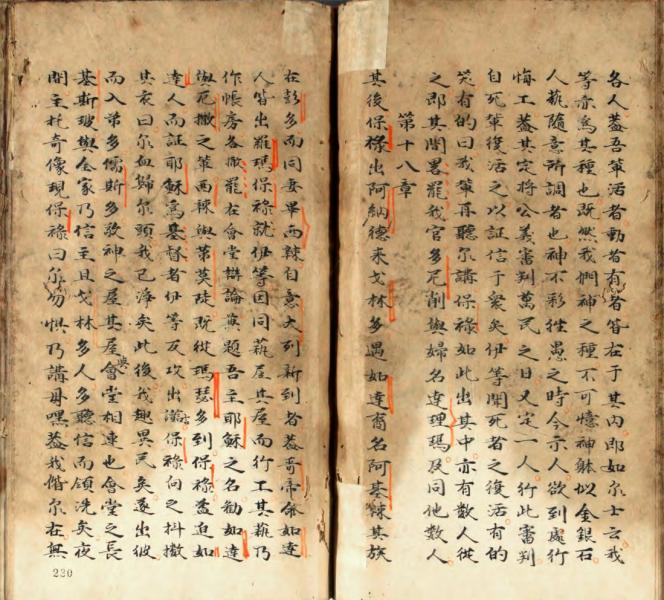 各人蓋吾輩活者動者有者皆在于其內即如尔士云我
等亦為其種也既然我們神之種不可憶神躰似金銀石
人藝隨意所調者也神不彩徃愚之時今示人欲到處行
悔工蓋其定將公義審判萬民之日又定一人行此審判
自死輩復活之以証信于衆矣伊等聞死者之復活有的
笑有的曰我輩再聽尔講保祿如此出其中亦有数人從
之即其間畧罷我官多尼削與婦名達理瑪及同他数人
第十八章
其後保祿出阿納德来戈林多遇如達裔名阿基辣其族
在彭多而同妻畢西辣自意大列新到者蓋哥帝俞如達
人皆出羅瑪保祿就伊等因同藝屋其屋而行工其藝乃
作帳房各撒罷在會堂辯論兼題吾主耶穌之名勸如達
與厄撒之輩西辣與第莫陡既從瑪瑟多到保祿益迫如
達人而証耶穌為基督者伊等反攻出謗保祿向之抖撒
其衣曰尔血歸尔頭我已淨矣此後我趣異民矣遂出彼
而入弟多儒斯多敬神之屋其屋與會堂相連也會堂之長
基斯玻與全家乃信主且戈林多人多聽信而領洗矣夜
間主托奇像現保祿曰尔勿惧乃講毋嘿蓋我偕尔在無
230